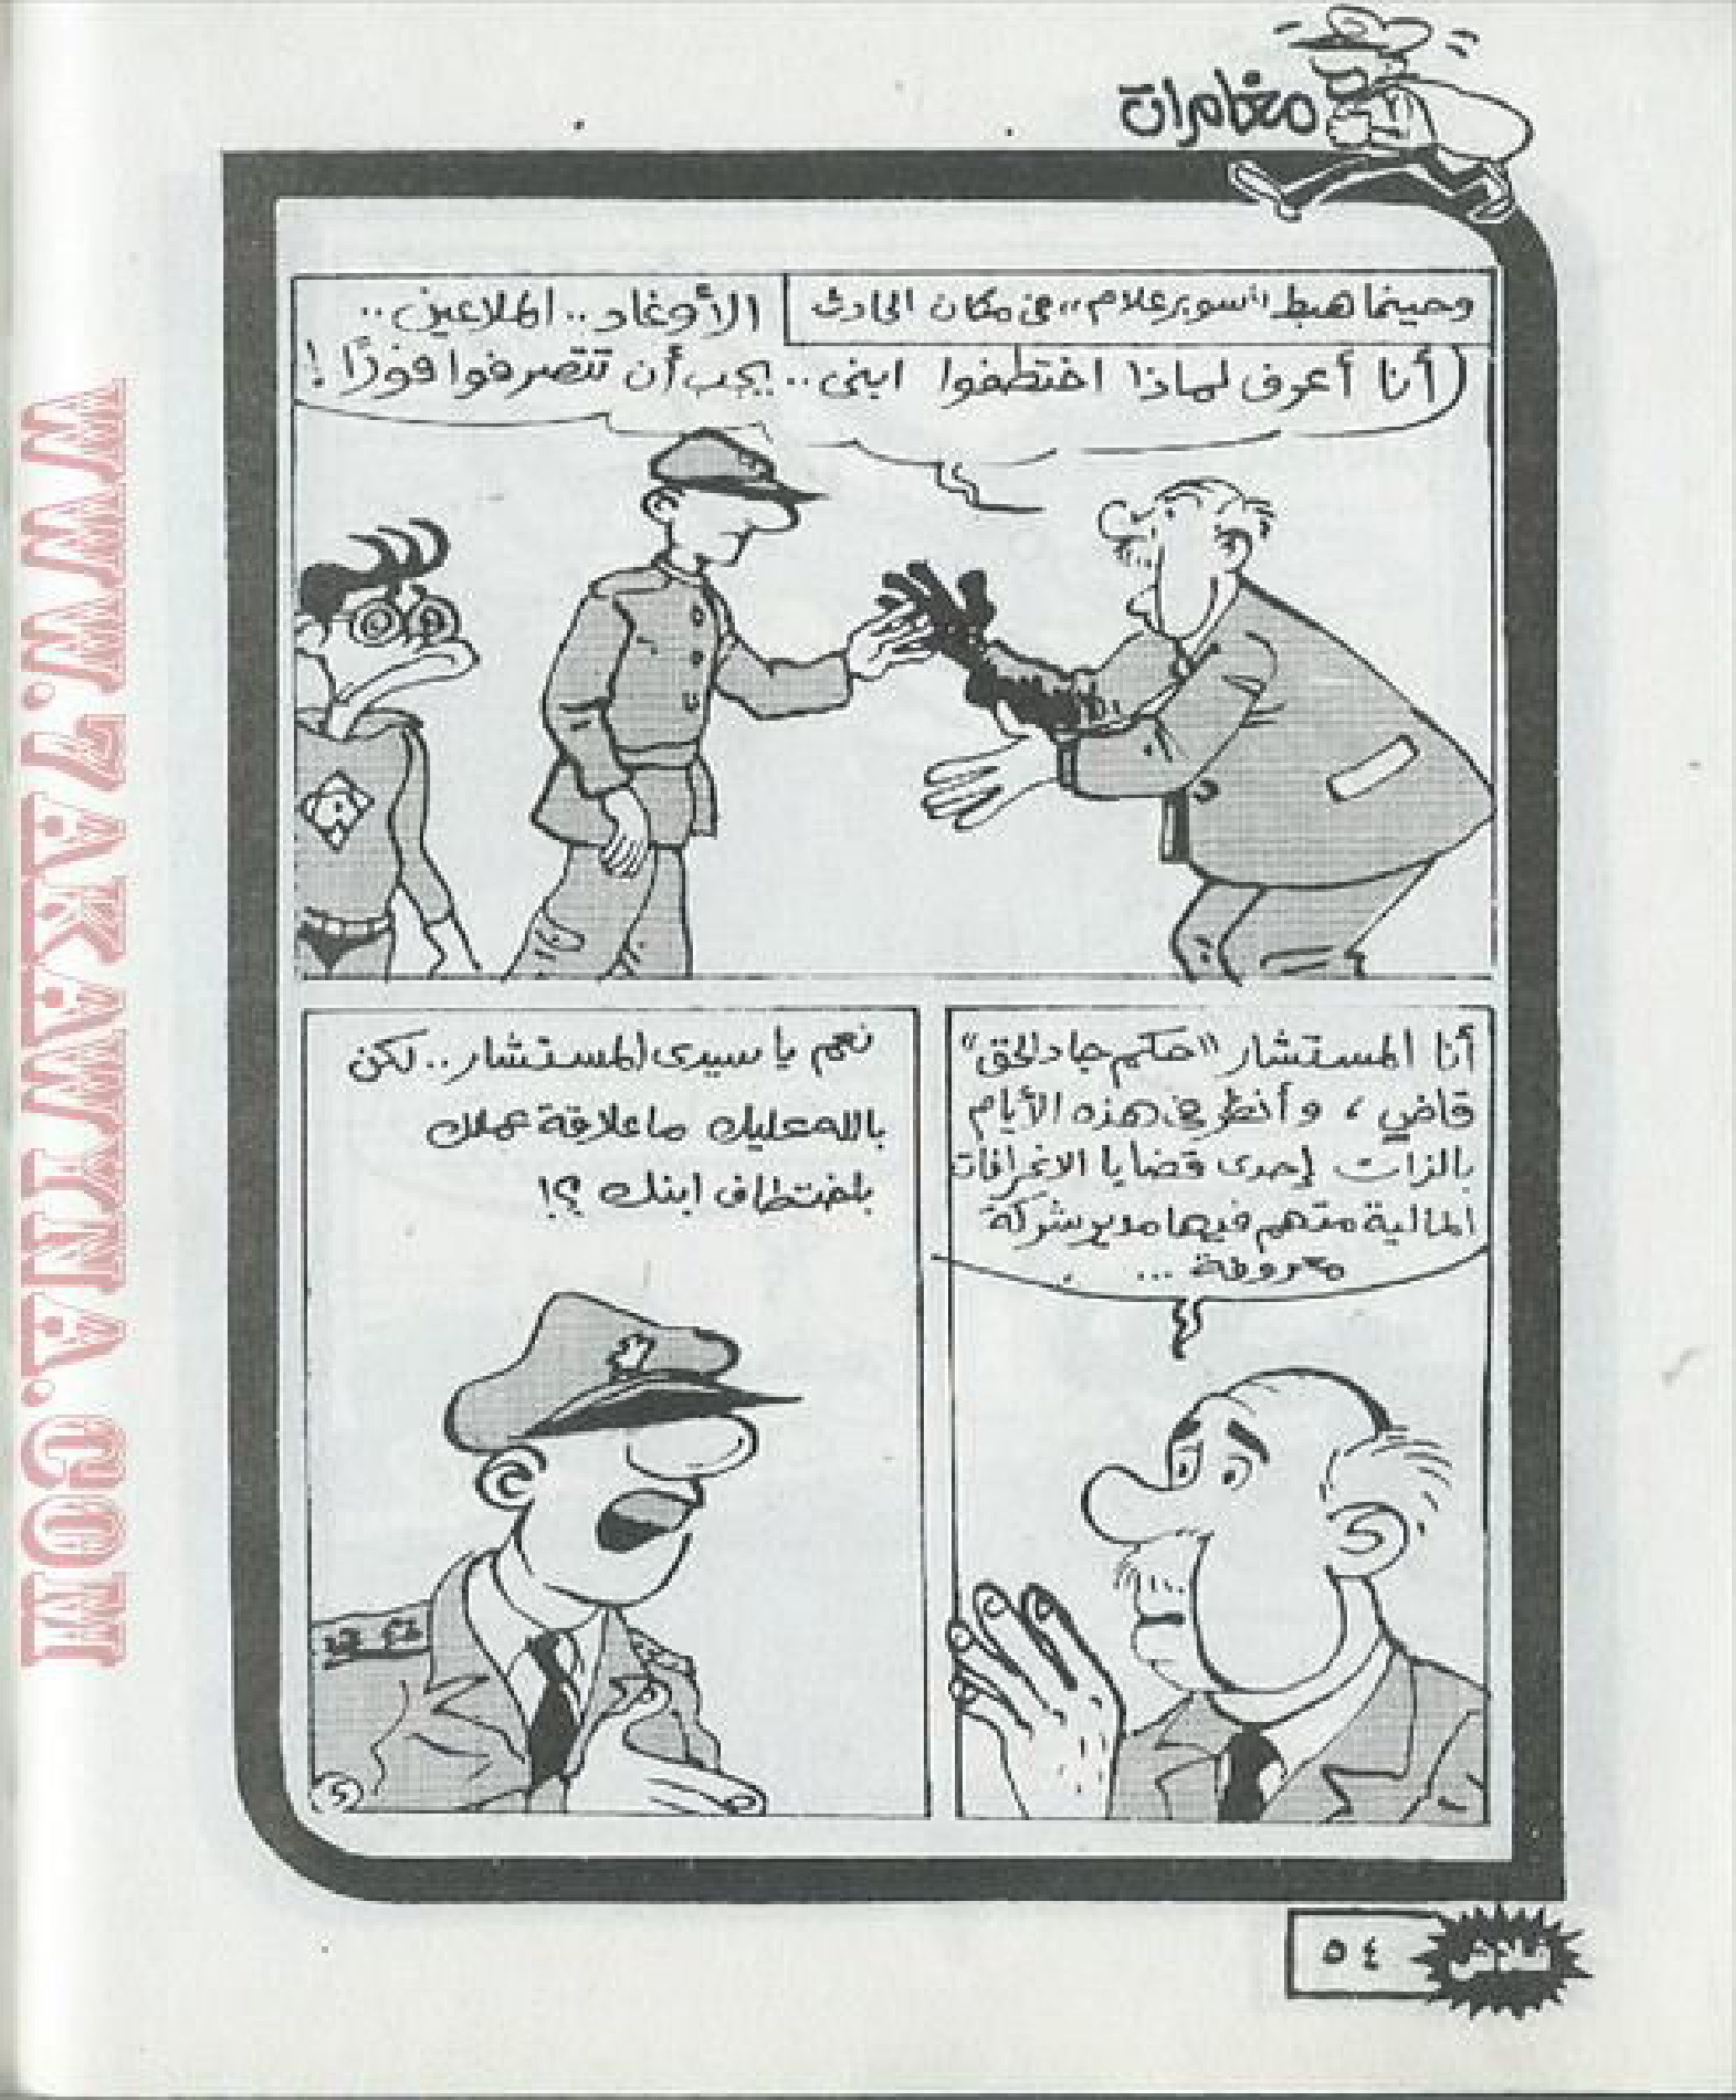 مغامرات
وحينما هبط "سوبر علام" فى مكان الحادث
الأوغاد.. الملاعين..
أنا أعرف لماذا اختطفوا ابنى.. يجب أن تتصرفوا فورًا !
أنا المستشار "حكم جاد الحق"
قاضي ، وأنظر فى هذه الأيام
بالذات إحدى قضايا الانحرافات
المالية متهم فيها مدير شركة
معروفة ...
نعم يا سيدى المستشار.. لكن
بالله عليك ما علاقة عملك
باختطاف ابنك ؟!
٥٤
فلاش
WWW.7AKAWINA.COM